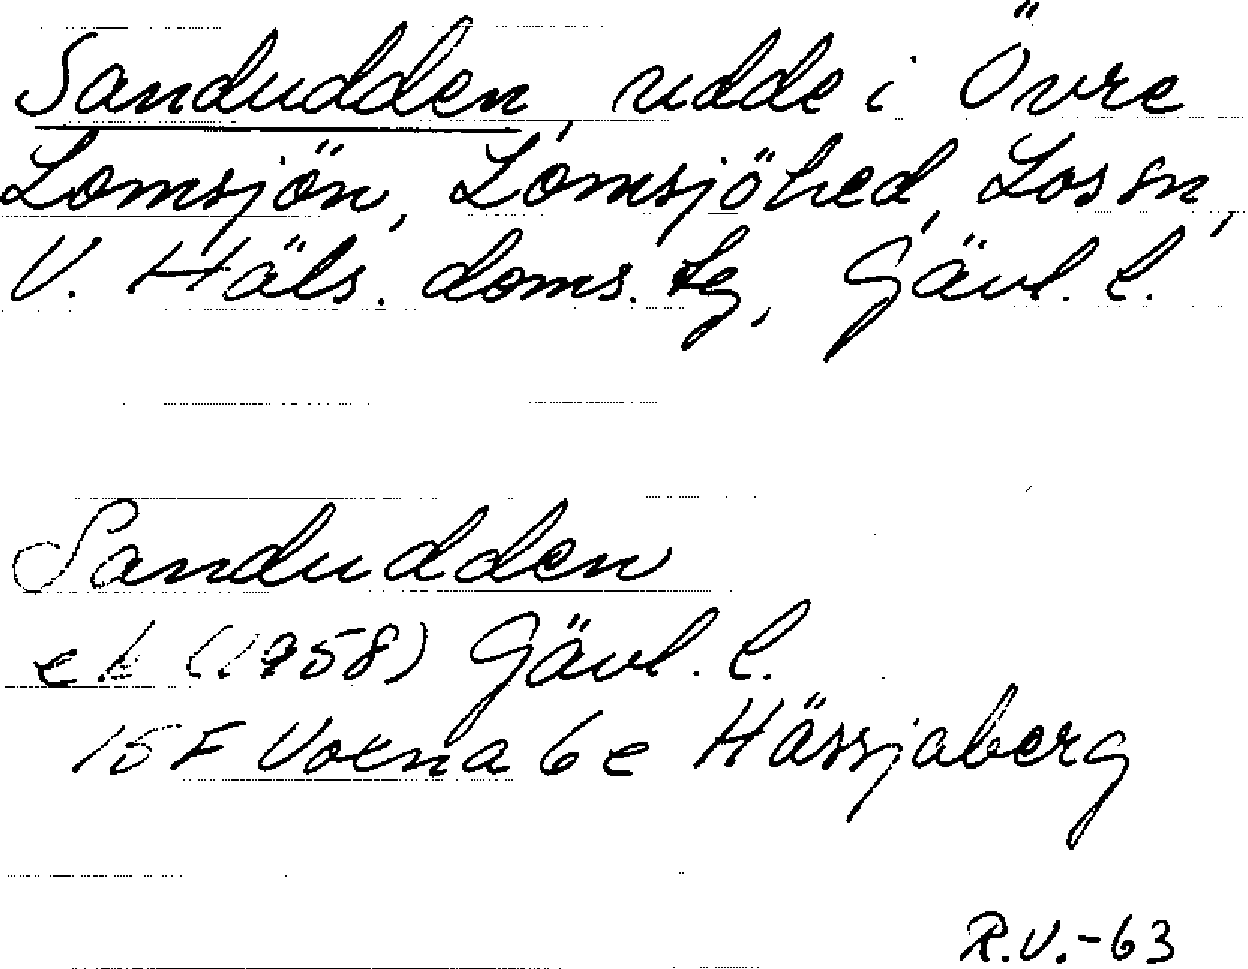 Sandudden, udde i Övre
Lomsjön, Lomsjöhed, Los sn,
V. Häls. doms. tg, Gävl. l.
Sandudden
e.k (1958) Gävl. l.
15 F Voxna 6 e Hässjaberg
R.V.-63